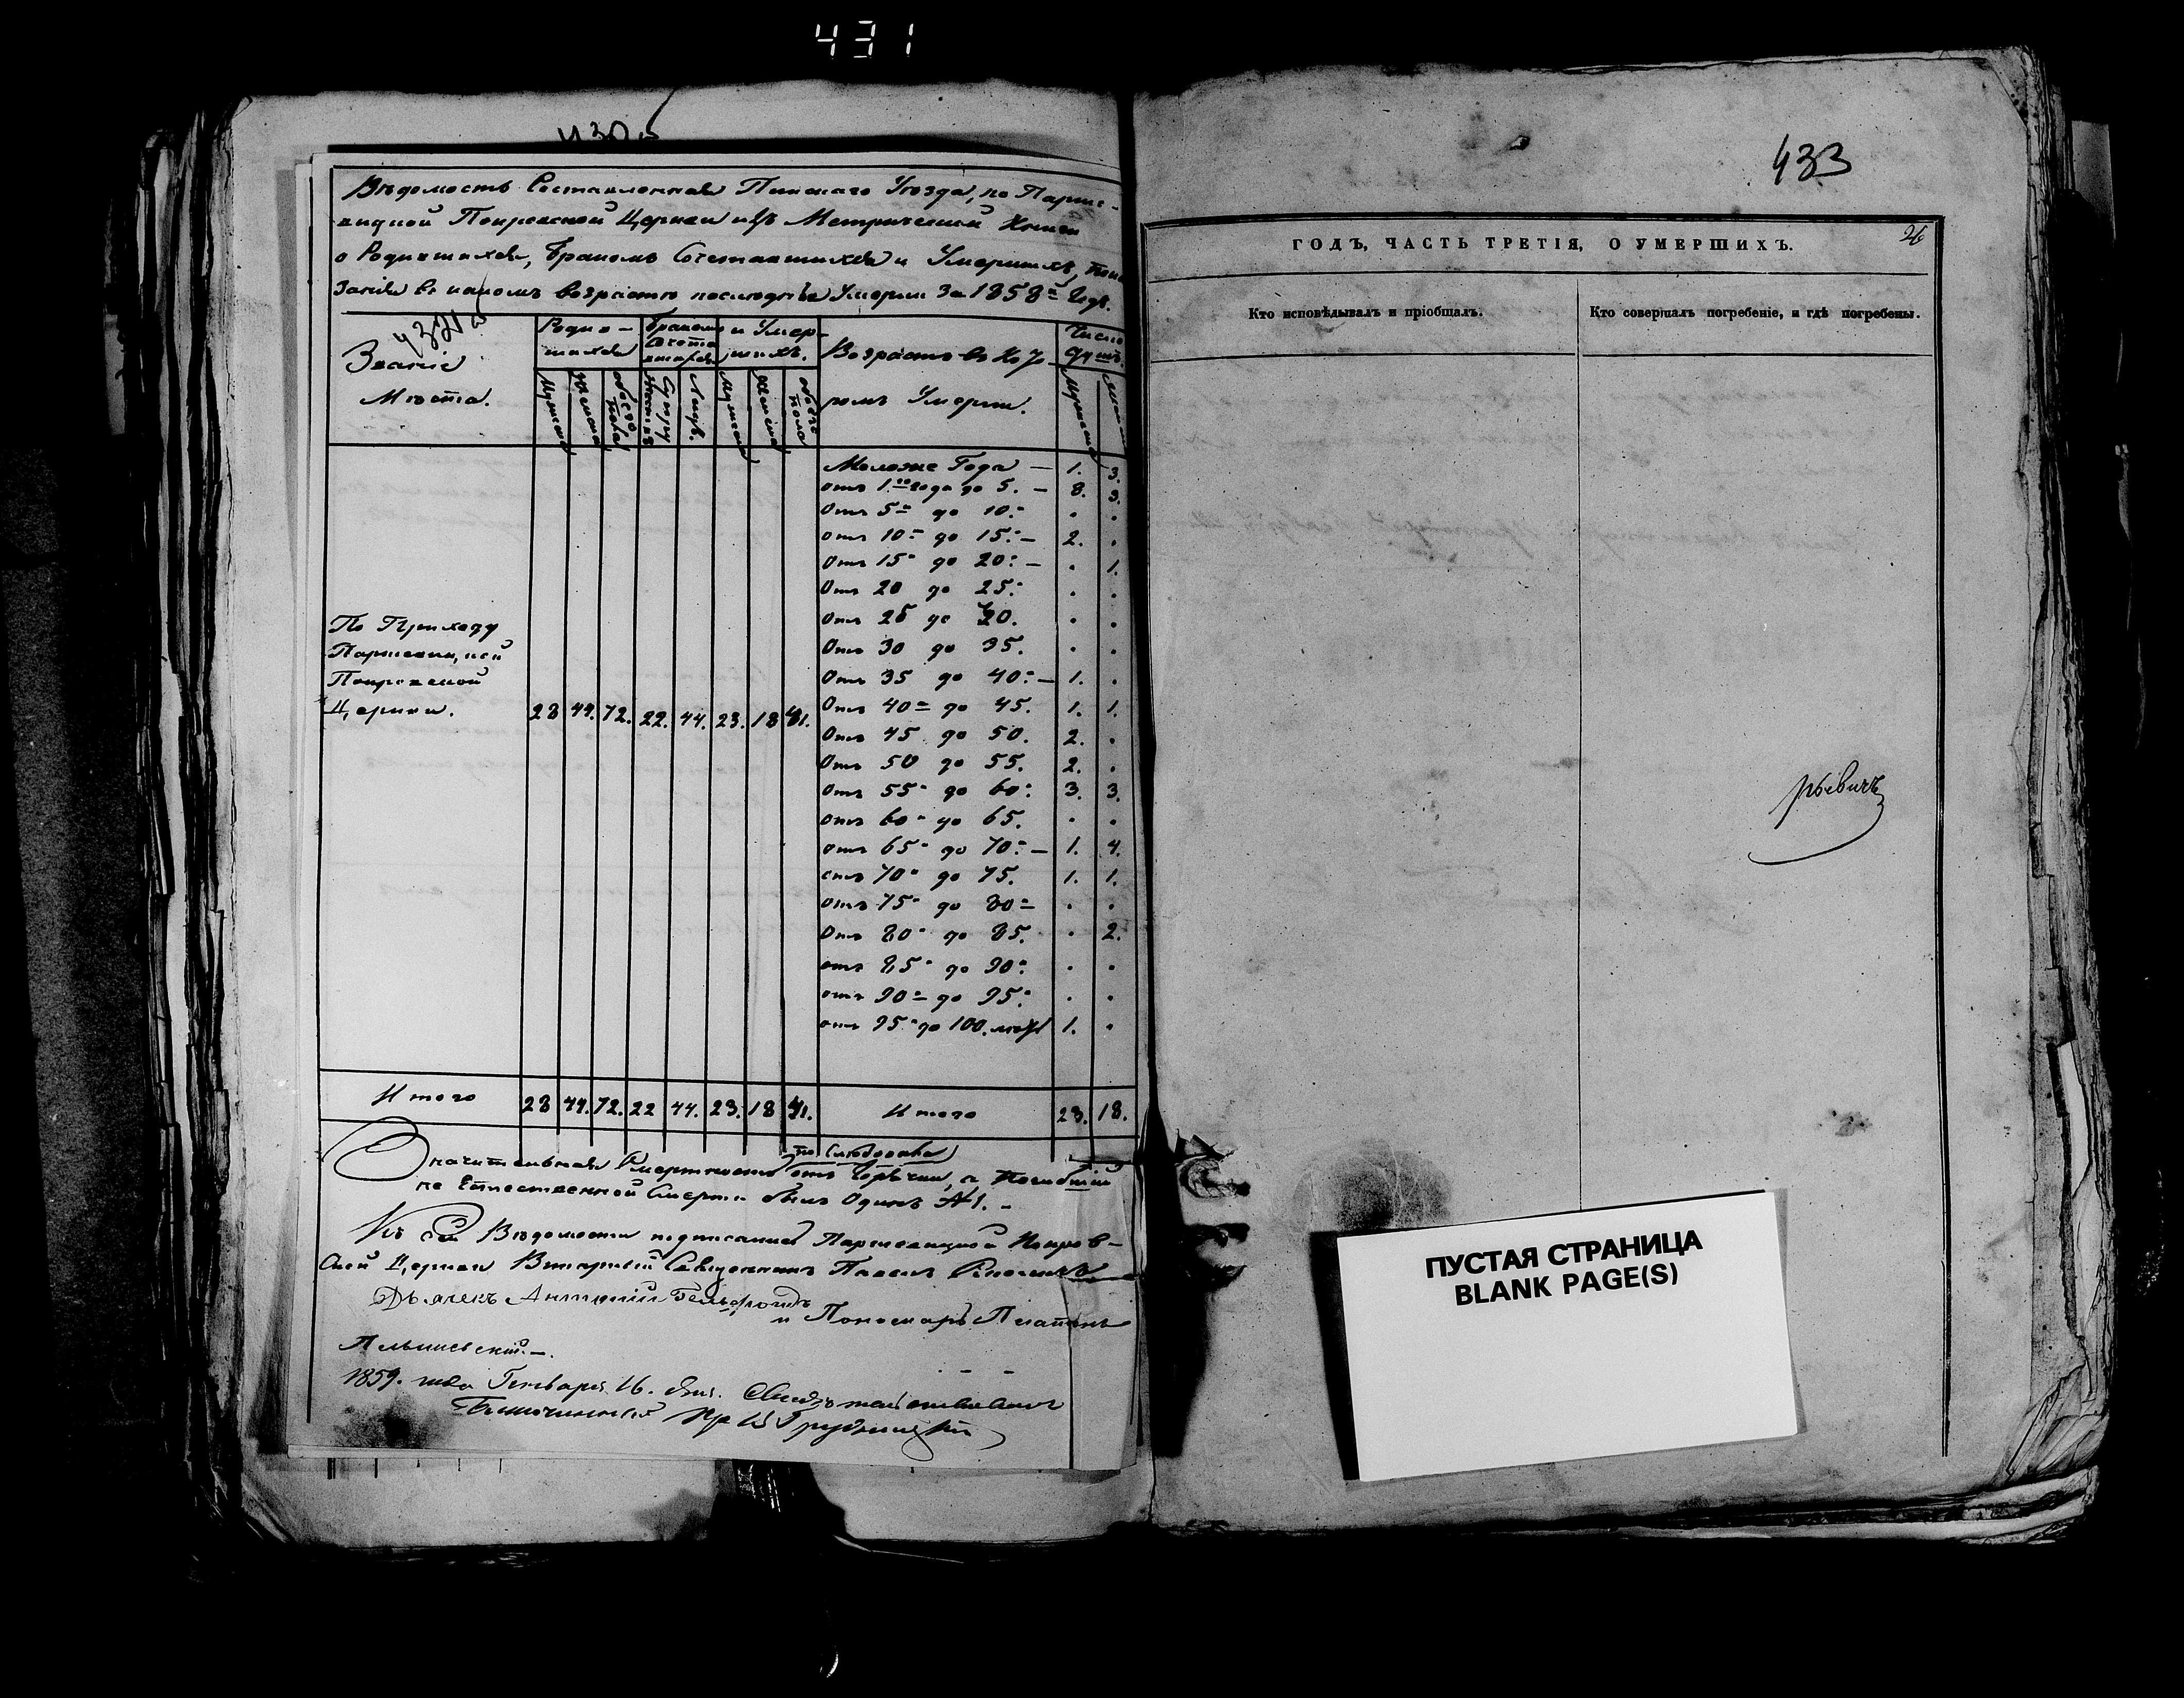 431
433
Вѣдомость Составленная Пинскаго Уѣзда, по Парше-
вицкой Покровской Церкви изъ Метрической Книги
о Родившихся, Бракомъ Сочетавшихся и Умершихъ, Пока
занія въ какомъ возрастѣ послѣдніе Умерли За 1858й Годъ.
Званіе
Мѣста.
Родив-
шихся
Бракомъ
Сочета
вшихся
и Умер-
шихъ.
Возрастъ въ Ко7о-
ромъ Умерли.
Число
Душъ.
Мужеска
Женска
обоего
пола
Супру
жествъ
Лицъ.
Мужеска
Женска
обоего
пола
Мужеска
Женска
Моложе Года — 1. 3.
отъ 1.го года до 5. — 8. 3.
Отъ 5 до 10. . .
отъ 10 до 15. — 2. .
Отъ 15 до 20. — . 1.
Отъ 20 до 25. . .
Отъ 25 до 30. . .
Отъ 30 до 35. . .
Отъ 35 до 40. — 1. .
Отъ 40 до 45. 1. 1.
Отъ 45 до 50. 2. .
Отъ 50 до 55. 2. .
Отъ 55 до 60. 3. 3.
отъ 60 до 65. . .
отъ 65 до 70. — 1. 4.
отъ 70 до 75. 1. 1.
отъ 75 до 80 . .
Отъ 80 до 85. . 2.
отъ 85 до 90. . .
отъ 90 до 95. . .
отъ 95 до 100. лѣтъ 1. .
По Приходу
Паршевицкой
Покровской
Церкви. 28 44. 72. 22. 44. 23. 18 41.
Итого 28 44. 72. 22 44. 23. 18 41. Итого 23. 18.
Значительная Смертность отъ Горячки, а Погибшій
не Естественной Смерти былъ Одинъ №1. –
Къ сей Вѣдомости подписались Паршевицкой Покров-
ской Церкви Викарный Священникъ Павелъ
Дьячекъ Антоній
и Пономарь Платонъ
1859. года Генваря 16. дня. Свидѣтельствовалъ
Благочинный
ГОДЪ, ЧАСТЬ ТРЕТІЯ, О УМЕРШИХЪ.
26
Кто исповѣдывалъ и пріобщалъ.
Кто совершалъ погребеніе, и гдѣ погребены.
рьевичъ
ПУСТАЯ СТРАНИЦА
BLANK PAGE(S)